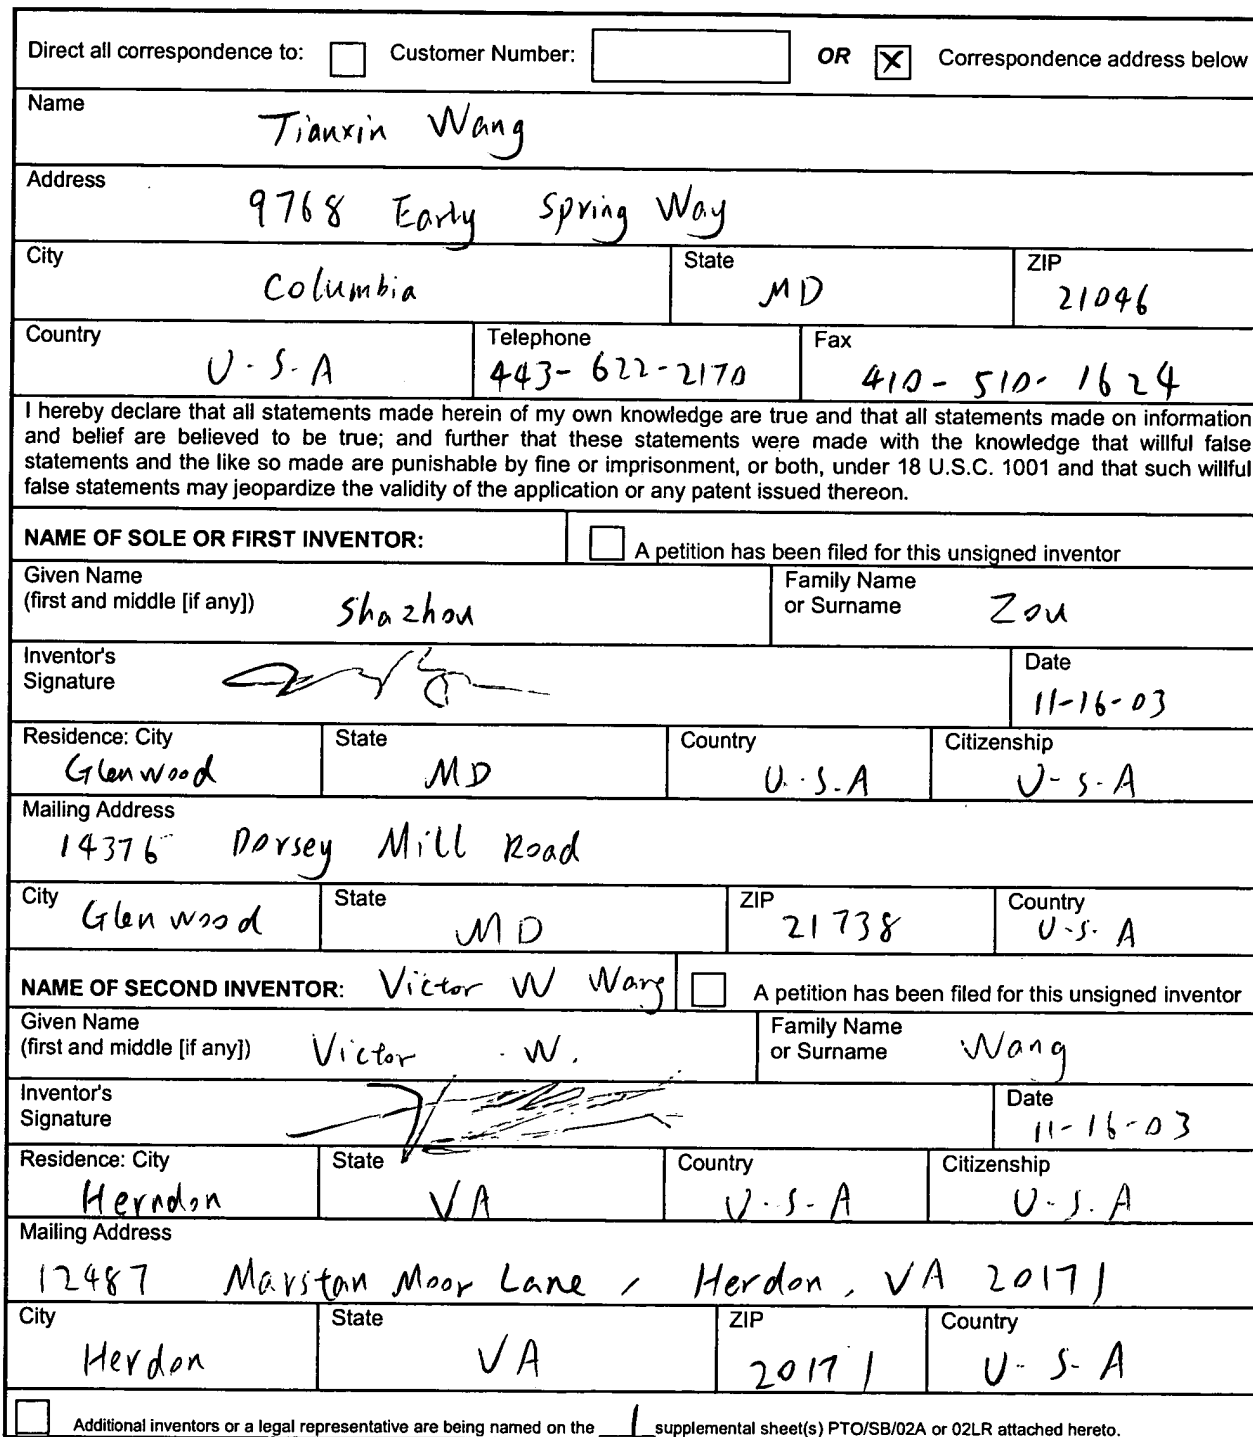 Direct all correspondence to: Customer Number: OR X Correspondence address below
Name
Tianxin Wang
Address
9768 Early Spring Way
City State ZIP
Columbia MD 21046
Country Telephone Fax
U.S.A 443-622-2170 410-510-1624
I hereby declare that all statements made herein of my own knowledge are true and that all statements made on information
and belief are believed to be true; and further that these statements were made with the knowledge that willful false
statements and the like so made are punishable by fine or imprisonment, or both, under 18 U.S.C. 1001 and that such willful
false statements may jeopardize the validity of the application or any patent issued thereon.
NAME OF SOLE OR FIRST INVENTOR: A petition has been filed for this unsigned inventor
Given Name Family Name
(first and middle [if any]) Shazhou or Surname Zou
Inventor's Date
Signature 11-16-03
Residence: City State Country Citizenship
Glenwood MD U.S.A U-S-A
Mailing Address
14376 Dorsey Mill Road
City State ZIP Country
Glenwood MD 21738 U.S.A
NAME OF SECOND INVENTOR: Victor W Wang A petition has been filed for this unsigned inventor
Given Name Family Name
(first and middle [if any]) Victor W. or Surname Wang
Inventor's Date
Signature 11-16-03
Residence: City State Country Citizenship
Herndon VA U.S.A U.S.A
Mailing Address
12487 Marstan Moor Lane, Herdon, VA 20171
City State ZIP Country
Herdon VA 20171 U-S-A
Additional inventors or a legal representative are being named on the 1 supplemental sheet(s) PTO/SB/02A or 02LR attached hereto.